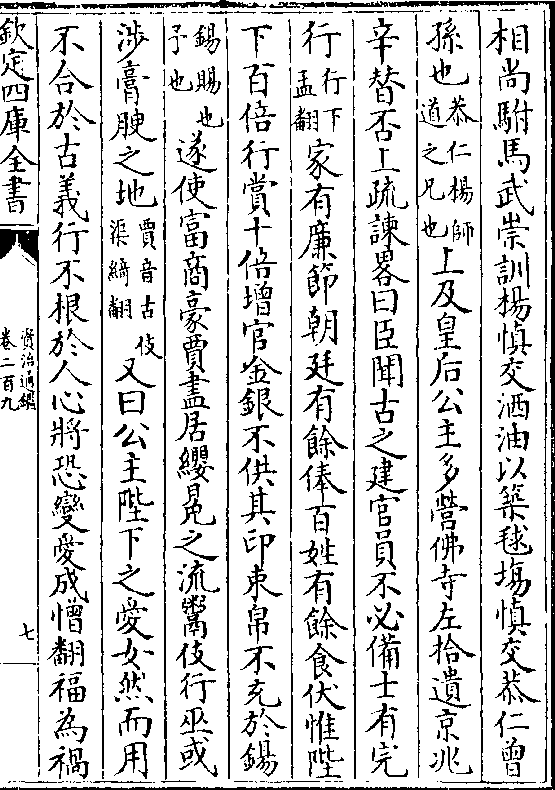 相尚駙馬武崇訓楊慎交洒油以築毬塲慎交恭仁曽
孫也恭仁楊師道之兄也上及皇后公主多營佛寺左拾遺京兆
辛替否上疏諫畧曰臣聞古之建官員不必備士有完
行行下孟翻家有廉節朝廷有餘俸百姓有餘食伏惟陛
下百倍行賞十倍增官金銀不供其印束帛不充於錫
錫賜也予也遂使富商豪賈盡居纓冕之流鬻伎行巫或
涉膏腴之地賈音古伎渠綺翻又曰公主陛下之愛女然而用
不合於古義行不根於人心將恐變愛成憎翻福為禍
欽定四庫全書
資治通鑑
卷二百九
七